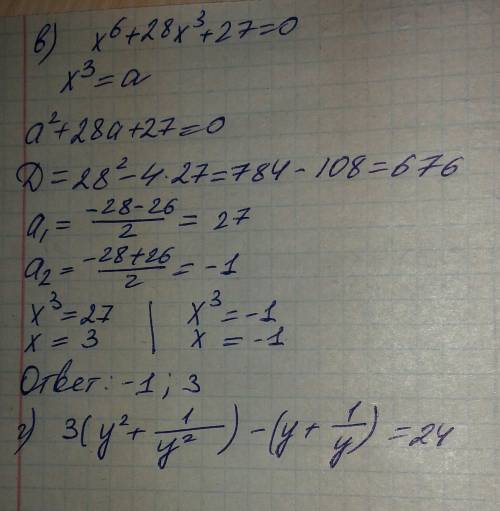 в) x⁶+28x³+27=0
x³=a
a²+28a+27=0
Д=28²-4·27=784-108=676
a₁= (-28-26)/2 = 27
a₂= (-28+26)/2 = -1
x³=27 | x³=-1
x = 3 | x = -1
Ответ: -1; 3
г) 3(y²+ 1/y²) -(y+ 1/y) =24